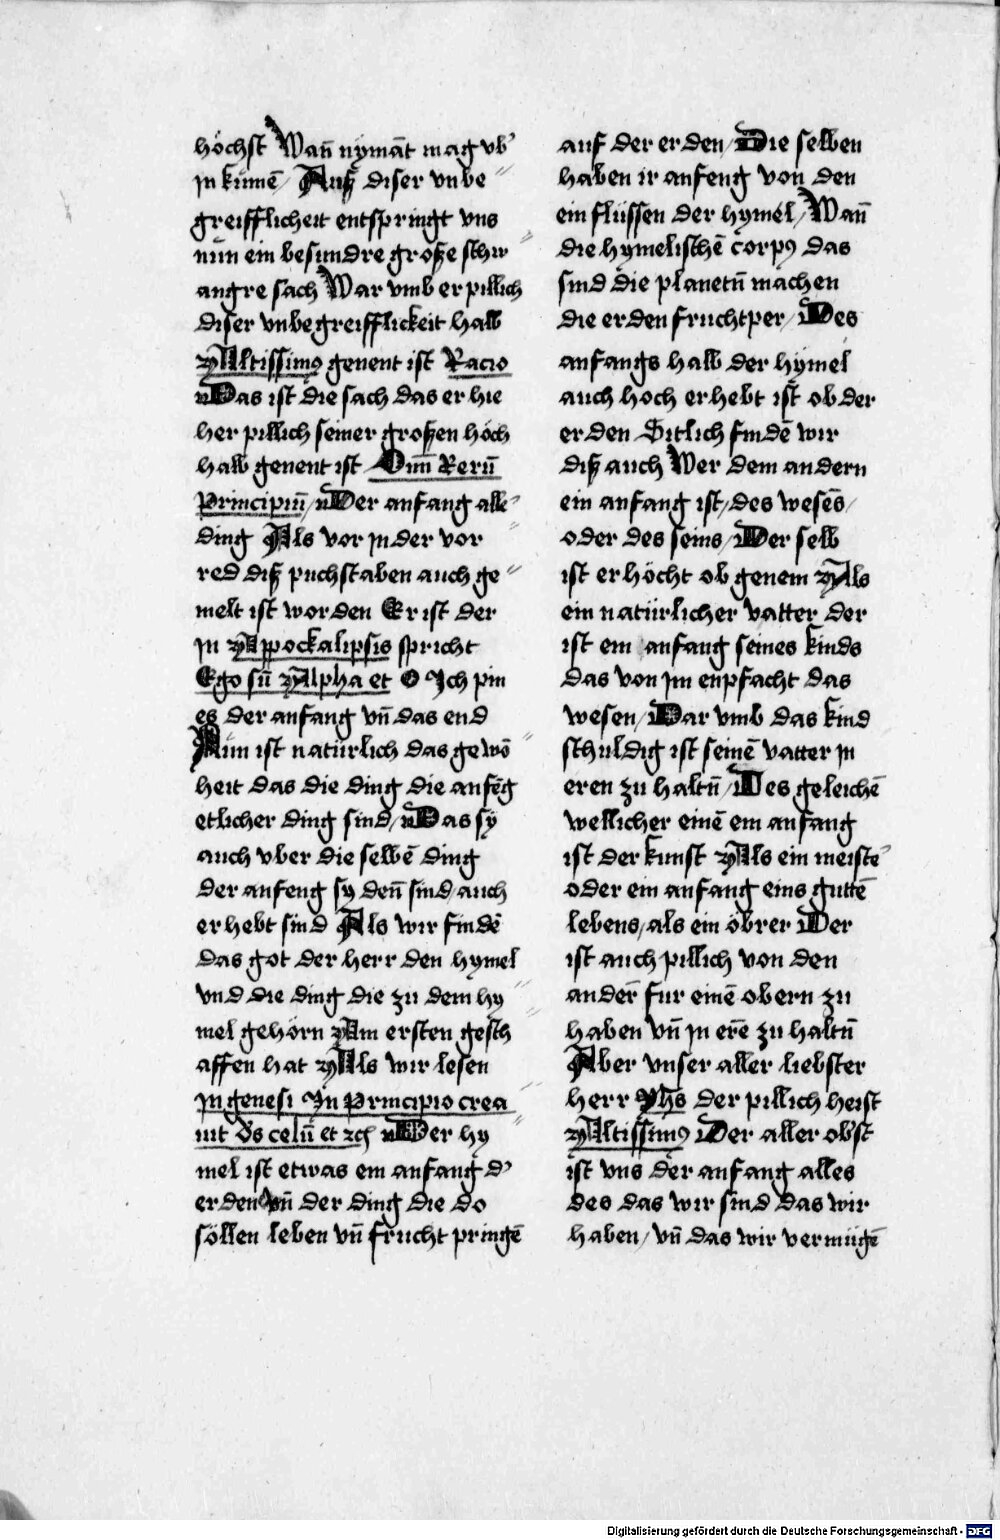 höchst Wan̄ nÿmāt mag vb'
jn kumē / Auß diser vnbe
greifflicheit entspringt vns
nün ein besundre große schw
angre sach War vmb er pillich
diser vnbegreifflickeit halb
Altissimꝰ genent ist Racio
Das ist die sach das er hie
her pillich seiner großen höch
halb genent ist Om̄ Rerū
Principiū / Der anfang alle
ding Als vor jn der vor
red diß puchstaben auch ge
melt ist worden Er ist der
jn Appockalipsis spricht
Ego sū Alpha et O Ich pin
es der anfang vn̄ das end
Nün ist natürlich das gewō
heit das die ding die anfēg
etlicher ding sind / Das sÿ
auch vber die selbē ding
der anfeng sy den̄ sind / auch
erhebt sind Als wir findē
das got der herr den hymel
vnd die ding die zu dem hy
mel gehörn Am ersten gesch
affen hat Als wir lesen
jn genesi In Principio crea
uit d's celū et rc̄ Der hy
mel ist etwas ein anfang d'
erden vn̄ der ding die do
söllen leben vn̄ frucht pringē
auf der erden / Die selben
haben ir anfeng von den
ein flüssen der hymel / Wan̄
die hymelischē corpꝰ das
sind die planetn̄ machen
die erden fruchtper / Des
anfangs halb der hÿmel
auch hoch erhebt ist ob der
erden Sitlich findē wir
diß auch Wer dem andern
ein anfang ist / des wesēs /
oder des seins / Der selb
ist erhöcht ob genem Als
ein natürlicher vatter der
ist ein anfang seines kinds
das von jm enpfacht das
wesen / Dar vmb das kind
schuldig ist seinē vatter jn
eren zu haltn̄ / Des geleichē
wellicher einē ein anfang
ist der kunst Als ein meiste'
oder ein anfang eins guttē
lebens / als ein öbrer Der
ist auch pillich von den
ander̄ fur einē obern zu
haben vn̄ jn erē zu haltn̄
Aber vnser aller liebster
herr Yh̄s der pillich heist
Altissimꝰ Der aller obst
ist vns der anfang alles
des das wir sind das wir
haben / vn̄ das wir vermügē
Digitalisierung gefördert durch die Deutsche Forschungsgemeinschaft - DFG